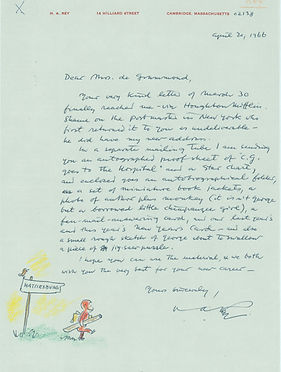 H. A. REY 14 HILLIARD STREET CAMBRIDGE, MASSACHUSETTS 02138
April 20, 1966
Dear Mrs. de Grummond,
Your very kind letter of March 30
finally reached me - via Houghton Mifflin
Shame on the postmaster in New York who
first returned it to you as undeliverable -
he did have my new address.
In a separate mailing tube I am sending
you an autographed proof sheet of "C.G.
goes to the Hospital" and a Star chart,
and enclosed goes an autobiographical folder,
as a set of miniature book jackets, a
photo of author plus monkey (it isn't George
but a borrowed little chimpanzee girl), a
fan-mail-answering card, and our last year's
and this year's New Year's Cards - and also
a small rough sketch of George about to swallow
a piece of jig-saw-puzzle.
I hope you can use the material, & we both
wish you the very best for your new career -
Yours sincerely,
HATTIESBURG